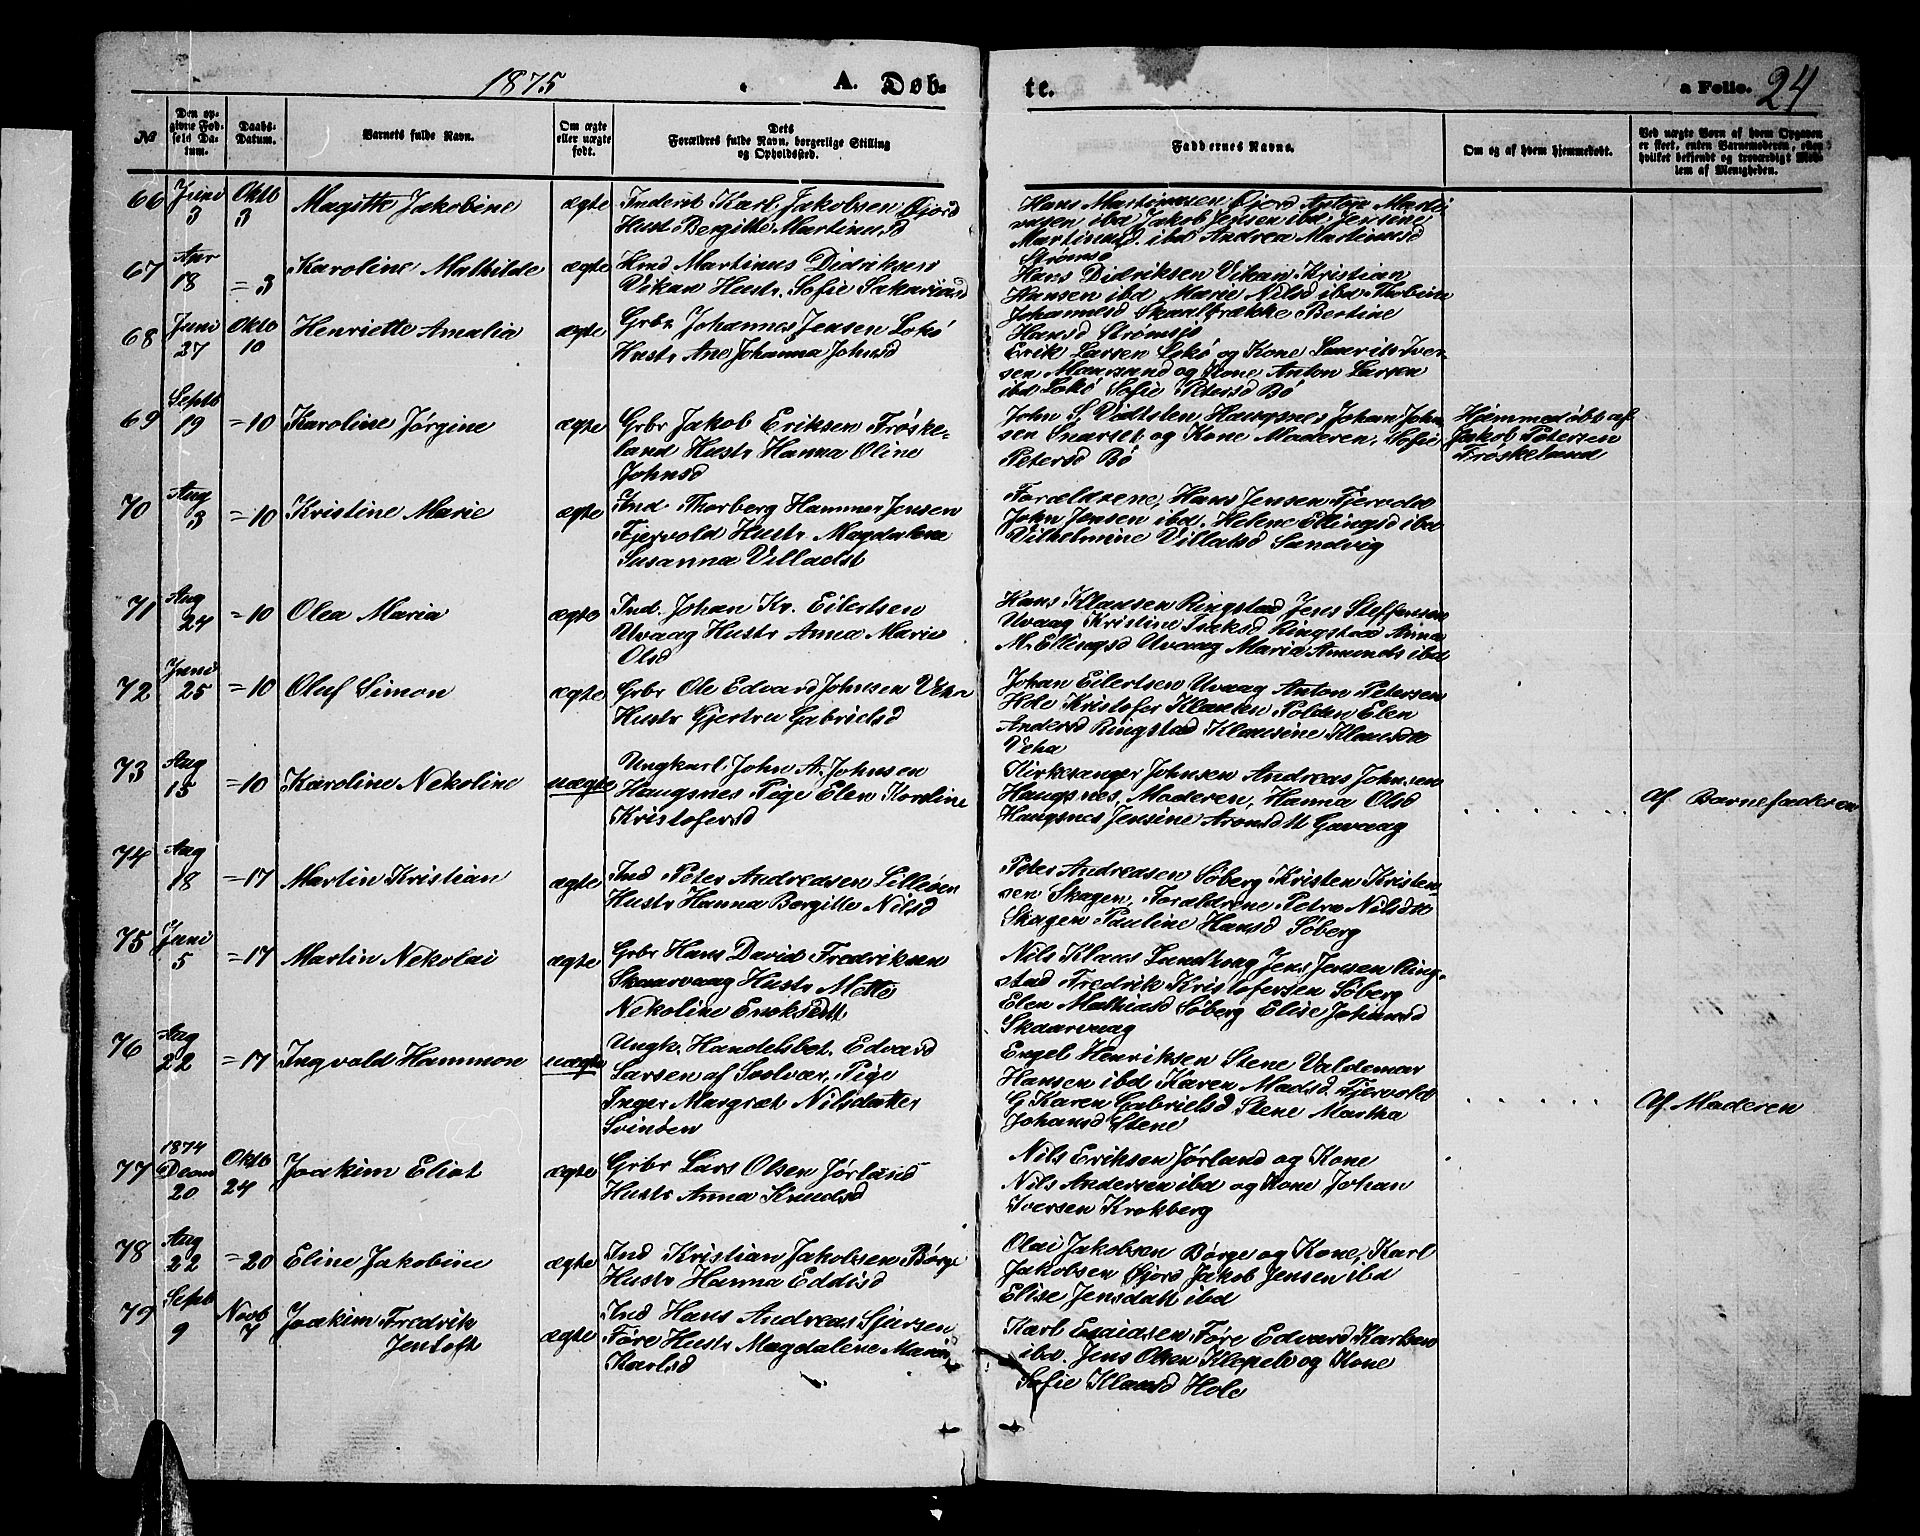 1875 A. Døb-
№
Den op-
givne Fød-
sels Da-
tum.
Daabs-
Datum.
Barnets fulde Navn.
Om ægte
eller uægte
født.
Dets
Forældres fulde Navn, borgerlige Stilling
og Opholdssted.
te.
a Folio. 24
Faddernes Navne.
Om og af hvem hjemmedøbt.
Ved uægte Børn af hvem Opgaven
er skeet, enten Barnemoderen, eller
hvilket bekjendt og troværdigt Med-
lem af Menigheden.
66 Juni 3 Oktb 3 Magitte Jakobine ægte Inderst Karl Jakobsen Øjord
Hust Bergitte Martinusd
Hans Martinussen Øjord Anton Marti
nusen ibd Jakob Jensen ibd, Jensine
Martinusd. ibd Andrea Martinusd
Strømsø
67 Apr 18 = 3 Karoline Mathilde ægte Hmd Martinus Didriksen
Vikan Hustr. Sofie Sakariasd
Hans Didriksen Vikan Kristian
Hansen ibd Marie Nilsd ibd
Johannesd Skaalbrække Bertine
Hansd Strømsjø
68 Juni 27 Oktb 10 Henriette Amalia ægte Grbr Johannes Jensen Lokø
Hustr Ane Johanna Johnsd
Erik Larsen Lokø og Kone Laurits Iver-
sen Maursund og Kone Anton Larsen
ibd Lokø Sofie Petersd Bø
69 Septb 19 = 10 Karoline Jørgine ægte Grbr Jakob Eriksen Frøske-
land Hustr Hanna Oline
Johnsd
John S. Haugsnes Johan John
sen Snarset og Kone Moderen, Sofie
Petersd Bø
Hjemmedøbt af
Jakob Petersen
Frøskeland
70 Aug 3 = 10 Kristine Marie ægte Ind Thorberg Hammer Jensen
Fjervold Hustr. Magdalena
Susanna Villadst
Forældrene, Hans Jensen Fjervold
John Jensen ibd. Helene Ellingsd ibd
Vilhelmine Villatsd Sandvig
71 Aug 24 = 10 Olea Maria ægte Ind. Johan Kr. Eilertsen
Uvaag Hustr Anna Marie
Olsd
Hans Klausen Ringstad Jens Steffensen
Uvaag Kristine Isaksd Ringstad Anna
M. Ellingsd Uvaag Maria Amunds ibd
72 Juni 25 = 10 Oluf Simon ægte Grbr Ole Edvard Johnsen Veha
Hustr Gjertru Gabrielsd
Johan Eilertsen Uvaag Anton Petersen
Hole Kristofer Klausen Polden Elen
Andersd Ringstad Klausine Klausdtt
Veha
73 Aug 15 = 10 Karoline Nekoline uægte Ungkarl John A. Johnsen
Haugsnes Pige Elen Karoline
Kristofersd
Kirkesanger Johnsen Andreas Johnsen
Haugsnes, Moderen, Hanna Olsd
Haugsnes Jensine Aronsdtt Gavaag
Af Barnefaderen
74 Aug 18 = 17 Martin Kristian ægte Ind Peter Andreasen Lilleøen
Hustr Hanna Bergitte Nilsd
Peter Andreasen Søberg Kristen Kristen-
sen Skagen, Forældrene Petra Nilsdtt
Skagen Pauline Hansd Søberg
75 Juni 5 = 17 Martin Nekolai ægte Grbr Hans David Fredriksen
Skaarvaag Hustr Mette
Nekoline Eriksdtt
Nils Klaus Jens Jensen Ring-
stad Fredrik Kristofersen Søberg
Elen Mathiasd Søberg Elise Johansd
Skaarvaag
76 Aug 22 = 17 Ingvold Hammon uægte Ungk. Handelsbet. Edvard
Larsen af Svolvær, Pige
Inger Margret Nilsdatter
Svinøen
Engel Henriksen Stene Valdemar
Hansen ibd Karen Madsd. Fjervold
G Karen Gabrielsd Stene Martha
Johansd Stene
Af Moderen
77 1874 Decm 20 Oktb 24 Joakim Eliot ægte Grbr Lars Olsen Jørland
Hustr Anna Knudsd
Nils Eriksen Jørland og Kone
Nils Andersen ibd og Kone Johan
Iversen Krokberg
78 Aug 22 = 20 Eline Jakobine ægte Ind Kristian Jakobsen Børge
Hustr Hanna Eddisd
Olai Jakobsen Børge og Kone, Karl
Jakobsen Øjord Jakob Jensen ibd
Elise Jensdatt ibd
79 Septb 9 Novb 7 Joakim Fredrik
Jentoft ægte Ind Hans Andreas Sjursen
Føre Hustr Magdalene Marie
Karlsd
Karl Esaiasen Føre Edvard Karlsen
ibd. Jens Olsen og Kone
Sofie Klausd Hole